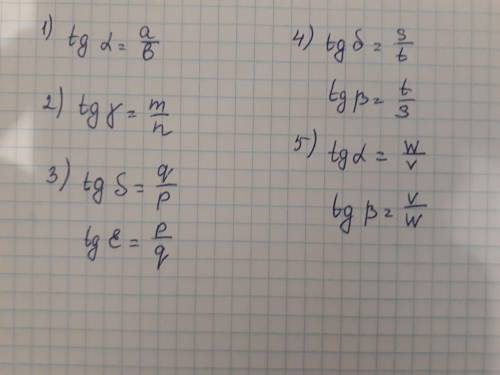 1) tg α = a/b
2) tg γ = m/n
3) tg δ = q/p
tg ε = p/q
4) tg δ = s/t
tg β = t/s
5) tg α = w/v
tg β = v/w